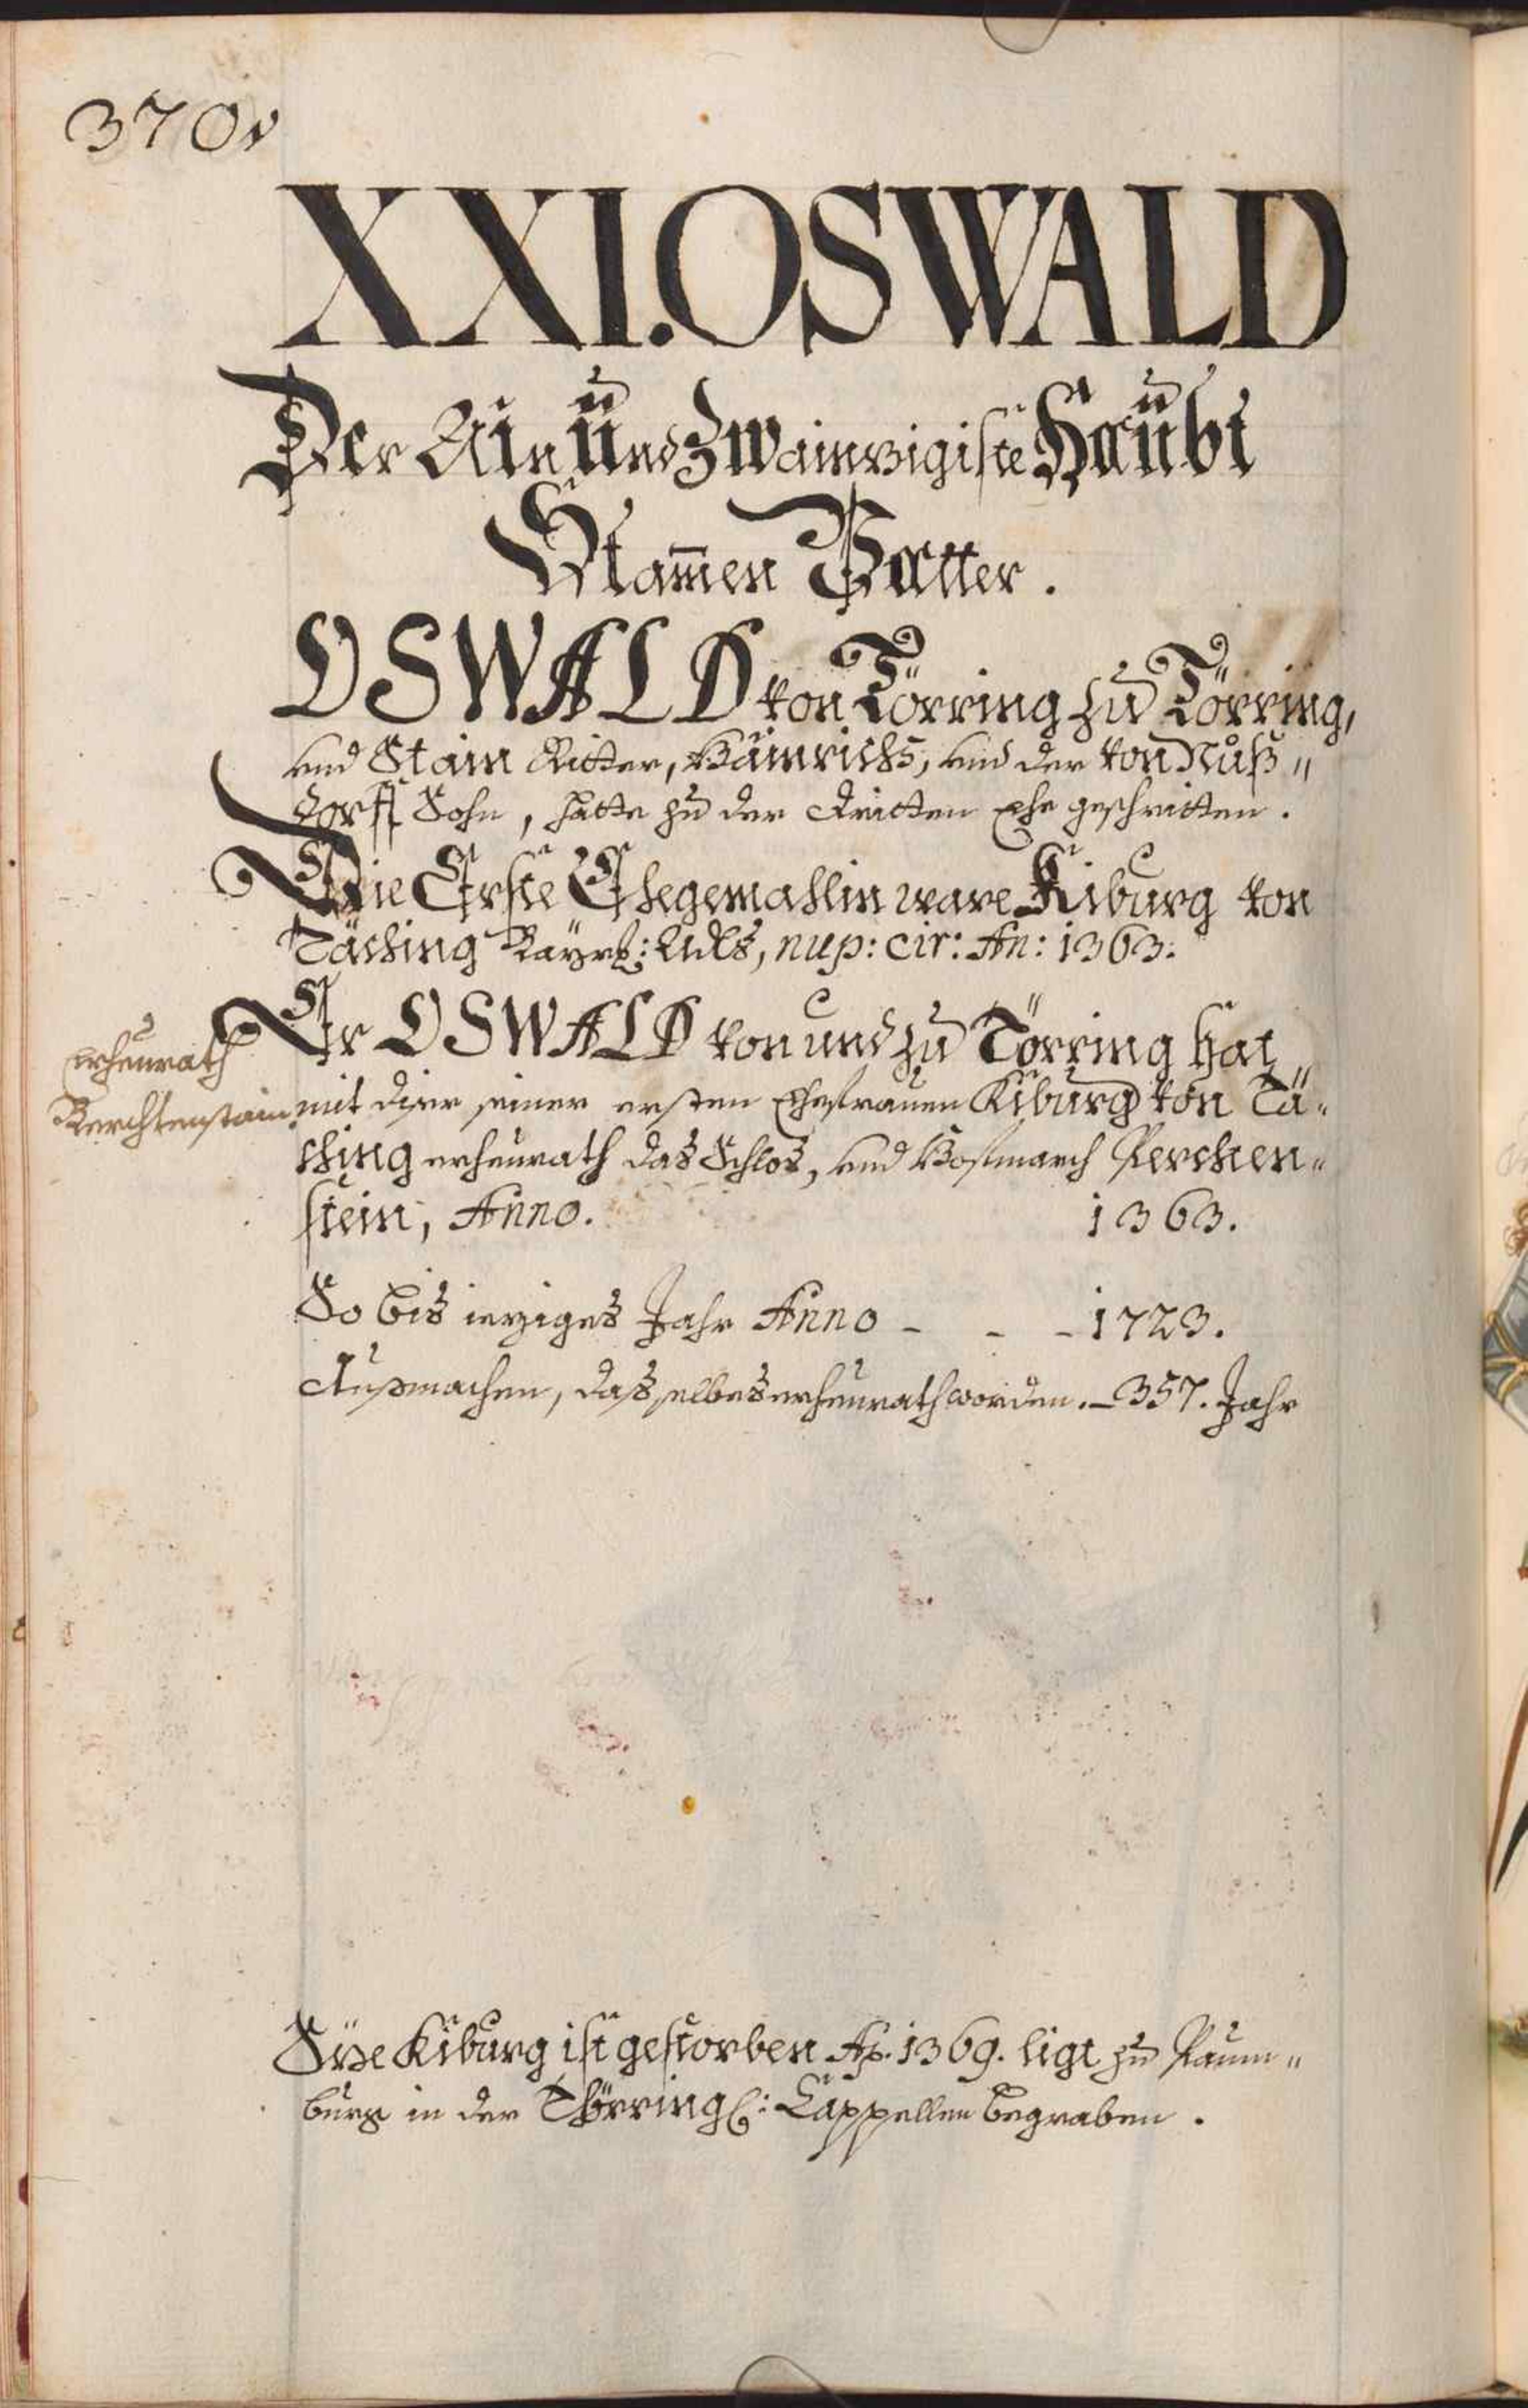 370v
XXI. OSWALD
Der Ain und Zwainzigiste Haubt
Stam̄en Vatter.
OSWALD von Törring zu Törring,
und Stain Ritter, Hainrichs, und der von Nuß„
dorff Sohn, hatte zu der dritten Ehe geschritten.
Die Erste Ehegemahlin ware Kiburg von
Täching Bayrl: Adls, nup: cir: An: 1363.
Er OSWALD von und zu Törring hat
erheurath
Berchtenstain
mit diser seiner ersten Ehefrauen Kiburg von Tä„
ching erheurath das Schlos, und Hofmarch Perchen„
stein, Anno. 1363.
So bis ieziges Jahr Anno - - - 1723.
Außmachen, das selbes erheurath worden. - 357. Jahr
Dise Kiburg ist gestorben Aõ. 1369. ligt zu Baum„
burg in der Thörringl: Cappellen begraben.